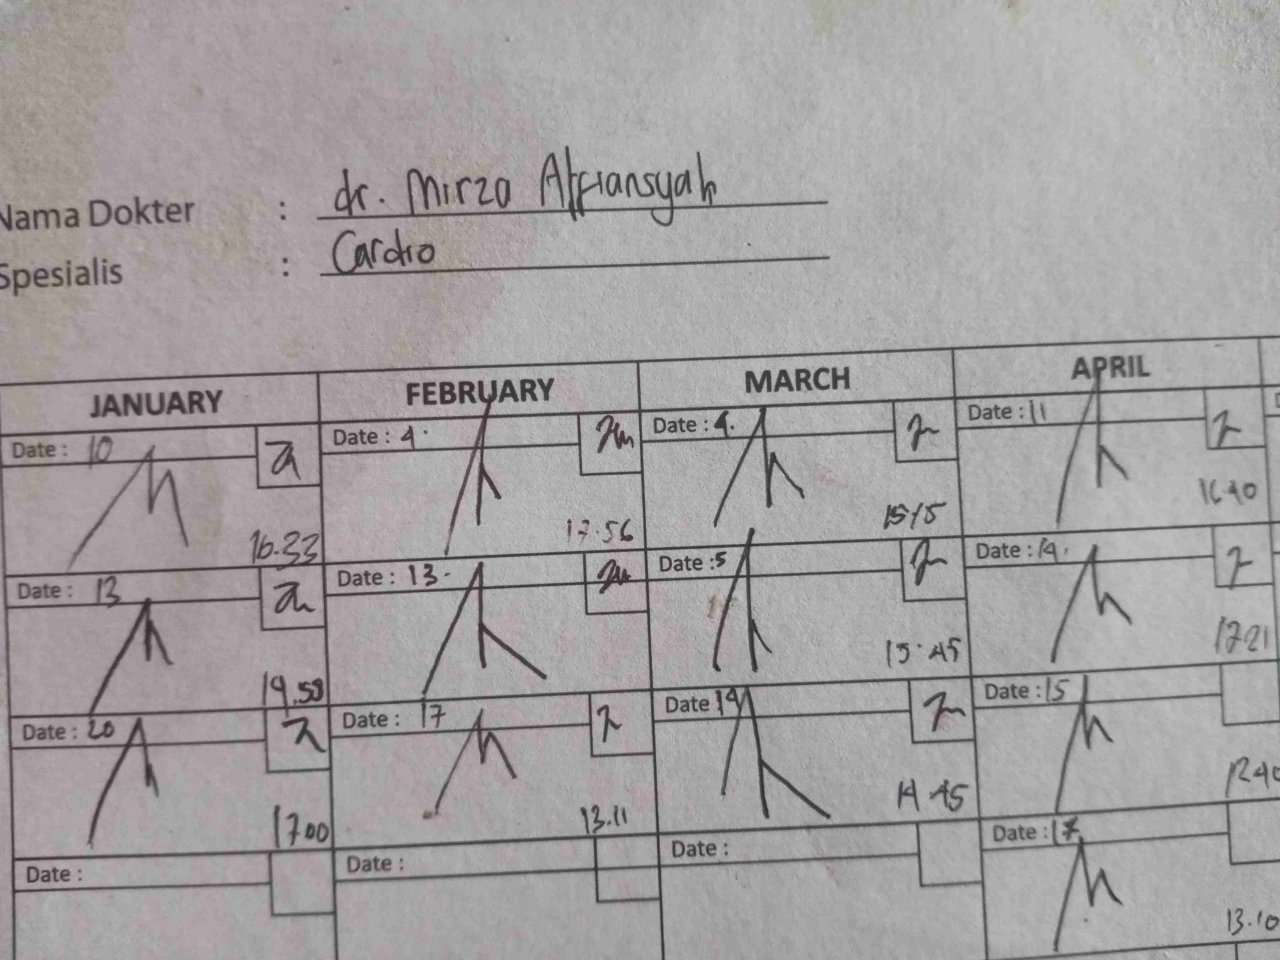 Nama Dokter : dr. Mirza Afriansyah
Spesialis : Cardio
JANUARY FEBRUARY MARCH APRIL
Date : 10 Date : 4. Date : 4. Date : 11
16.33 17.56 15.15 16.40
Date : 13 Date : 13. Date : 5 Date : 14.
19.59 15.45 17.21
Date : 20 Date : 17 Date 19 Date : 15
17.00 13.11 14.45 12.40
Date : Date : Date : Date : 17
13.10